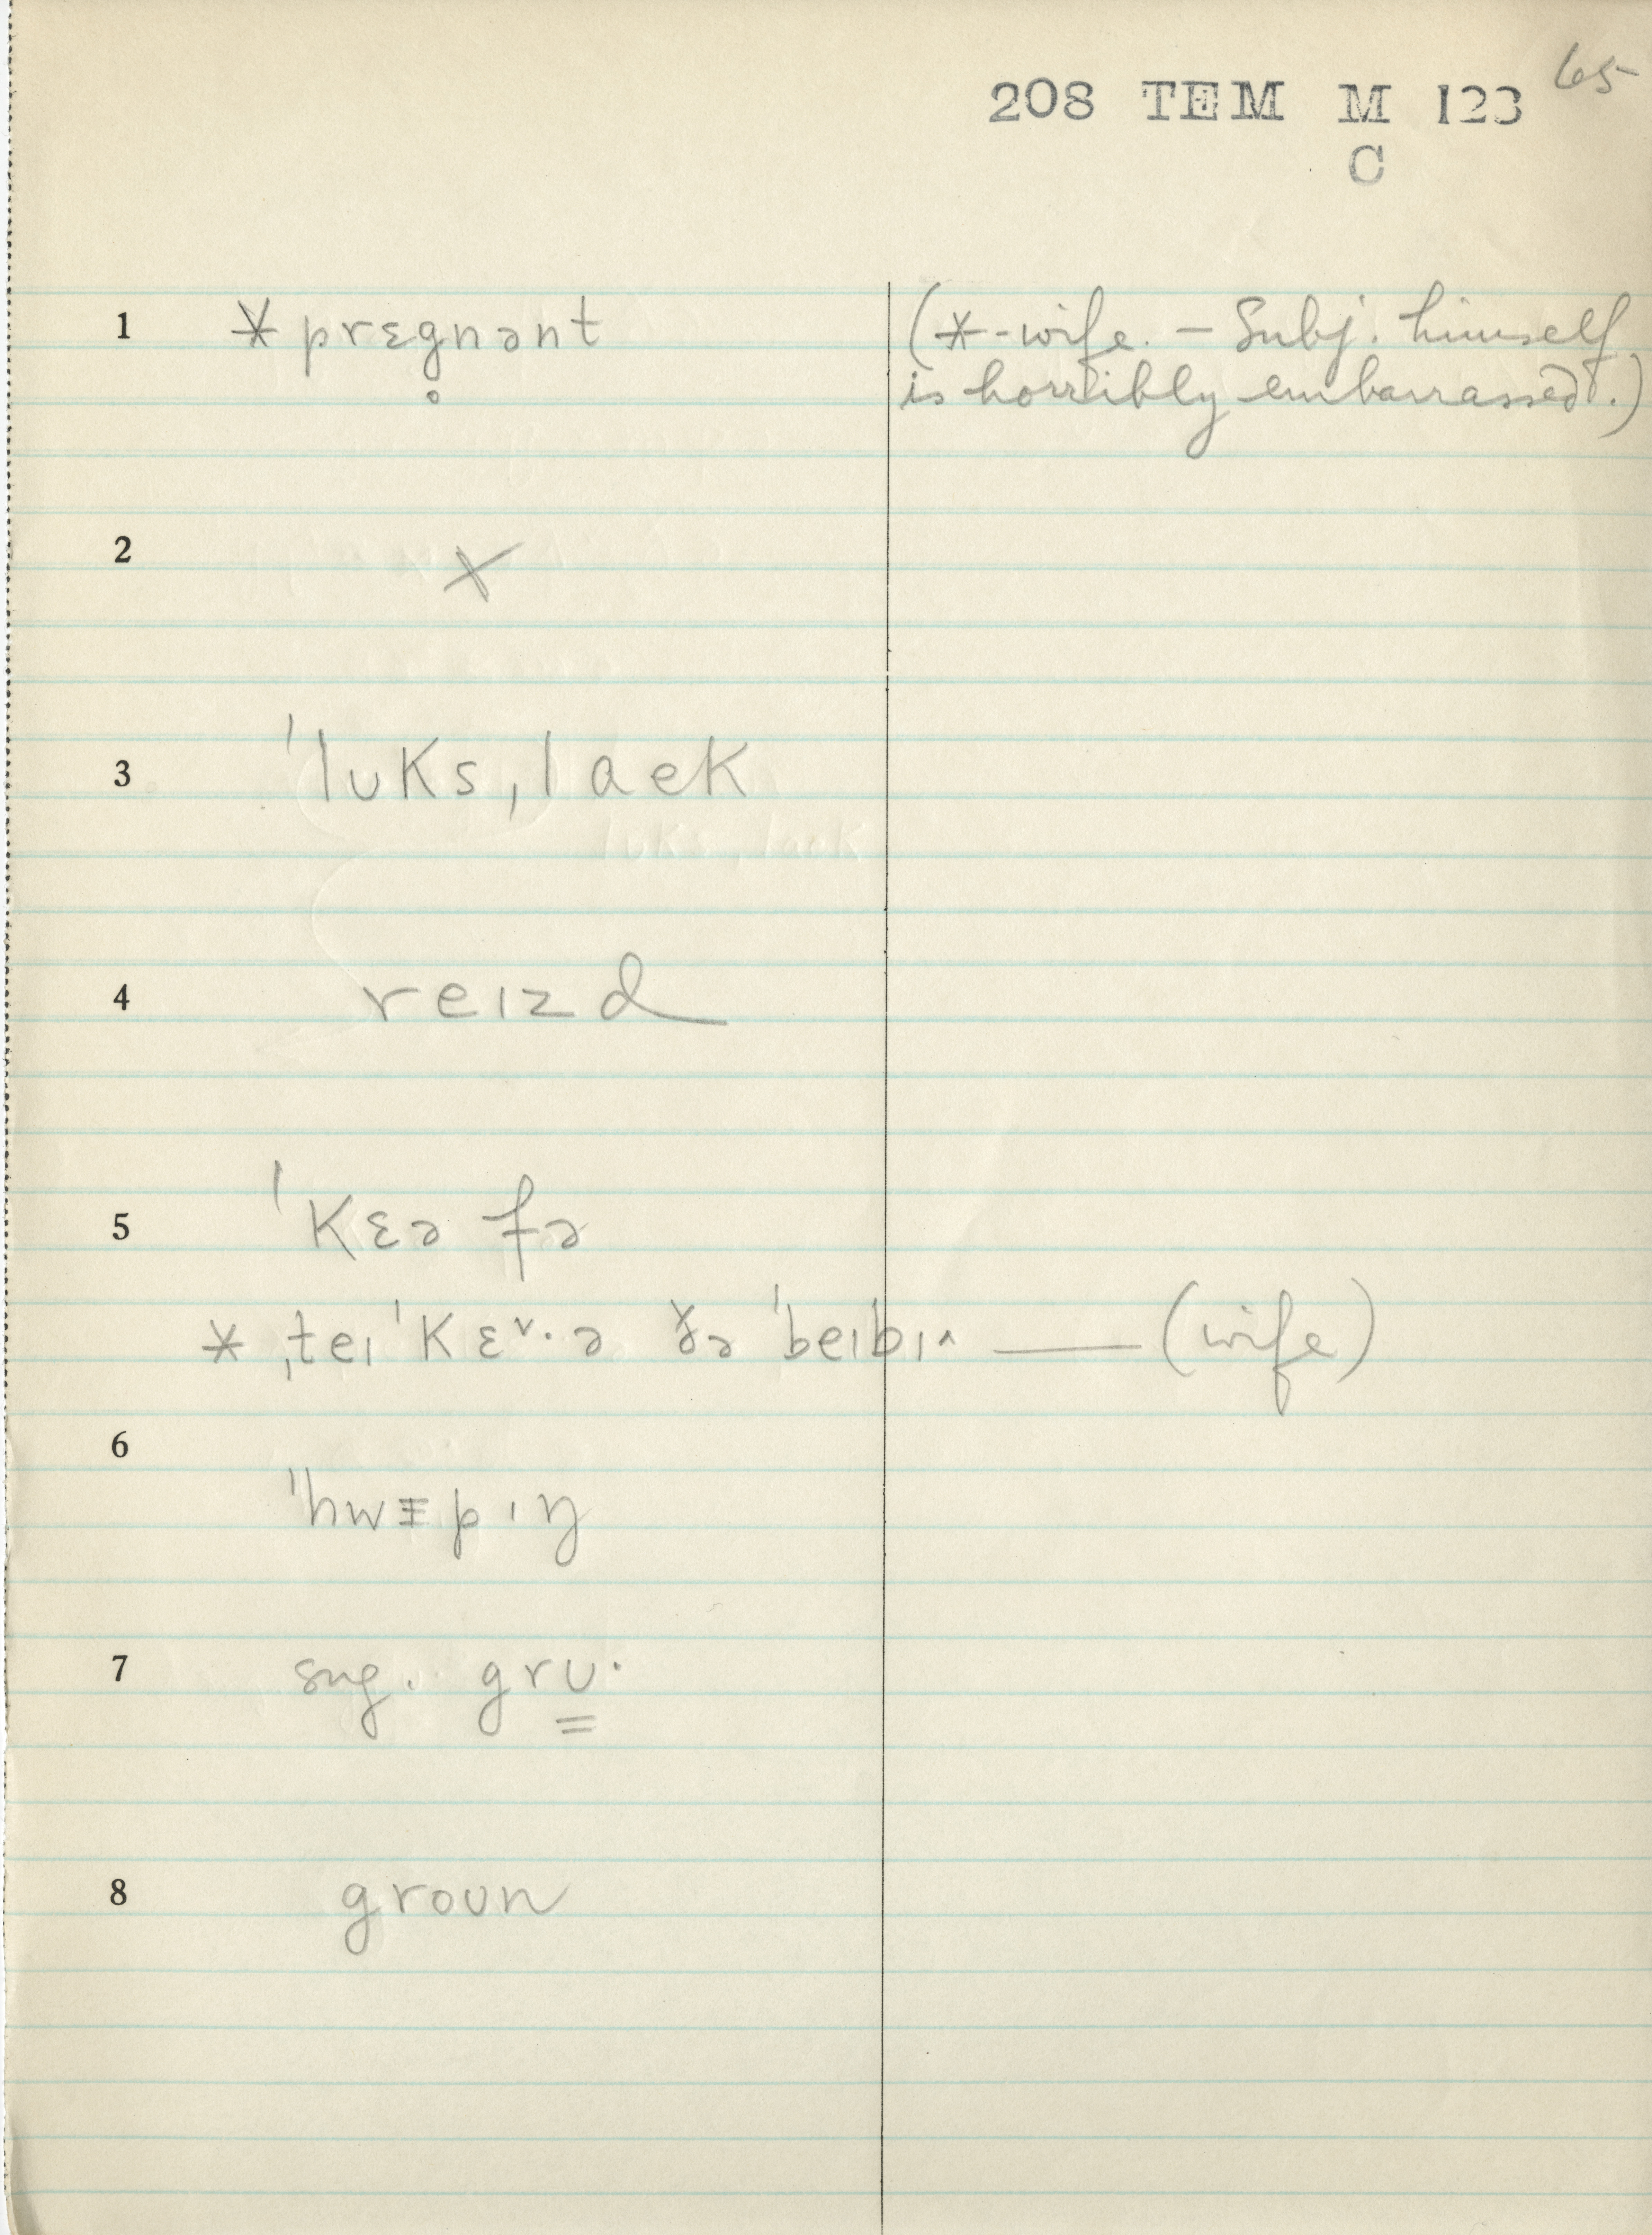 65
208 TEM M 123
C
1 * prɛg̥nənt (*-wife. – Subj. himself
is horribly embarrassed.)
2 X
3 ˈlʊks ˌlaek
4 reɪzd
5 ˈkɛə fə
* ˌteɪ ˈkɛ˅·ə ðə ˈbeɪbɪ^ —— (wife)
6
ˈhwɪpɪŋ
7 sug. grʊ·
8 groʊn